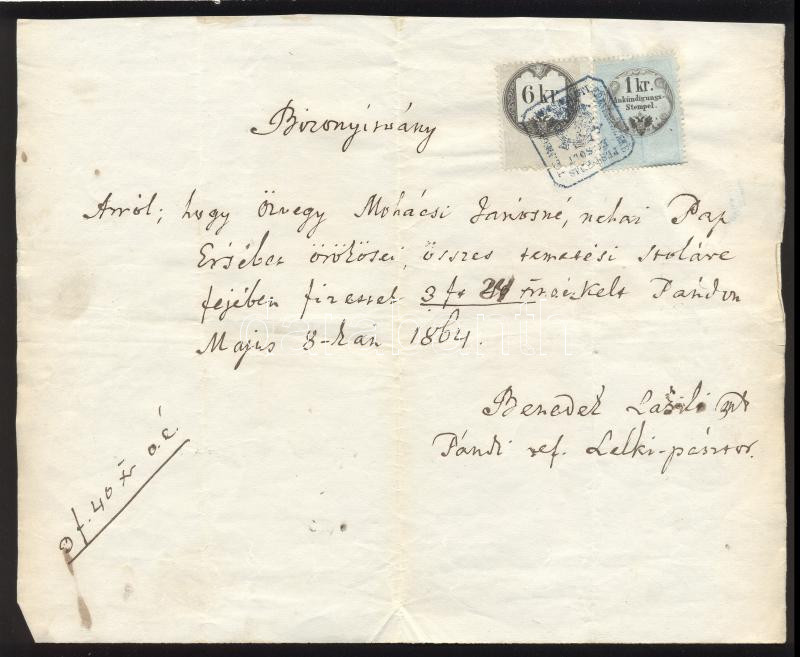 6 kr.
1 kr.
Ankündigungs-
Stempel.
Bizonyitvány
Arról; hogy özvegy Mohácsi Jánosné, néhai Pap
Ersébet örökösei, összes temetési stoláre
fejében fizettek 3 ft 24 xr. kelt Pándon
Majus 8-kan 1864.
Benedek László mk
Pándi ref. Lelki-pásztor.
f. 40 xr o. é.